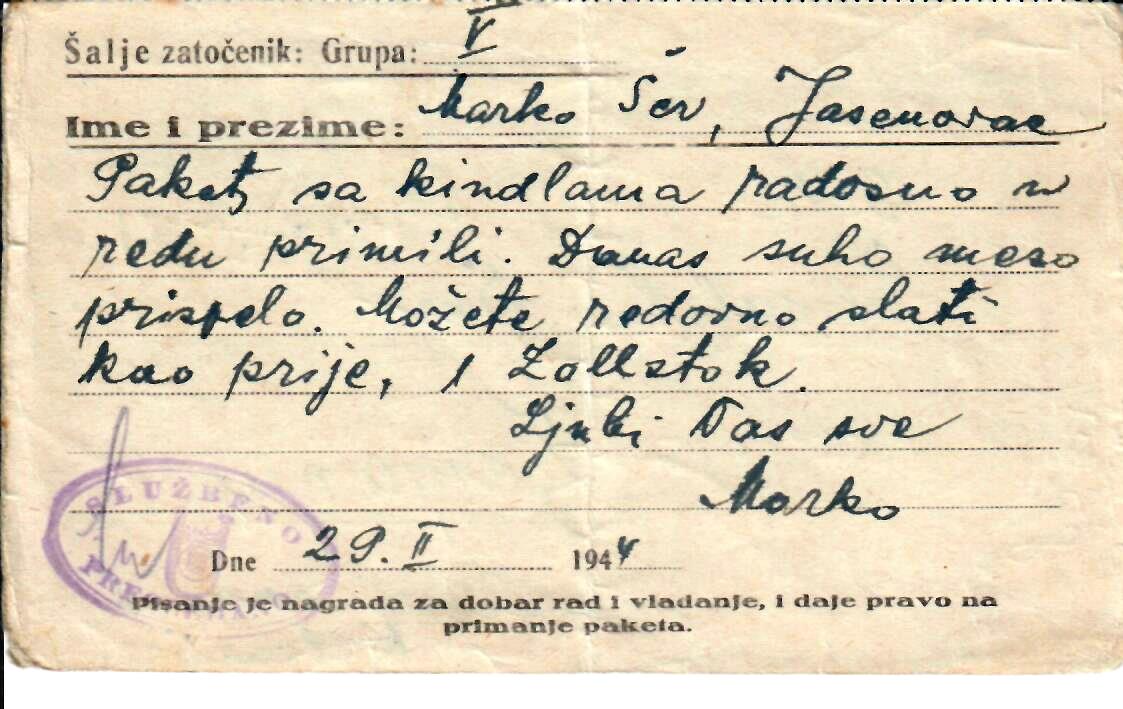 Šalje zatočenik: Grupa: V
Ime i prezime: Marko Šer, Jasenovac
Paket sa kindlama radosno u
redu primili. Danas suho meso
prispelo. Možete redovno slati
kao prije, 1 Zollstok.
Ljubi Vas sve
Marko
SLUŽBENO
Dne 29. II 1944
Pisanje je nagrada za dobar rad i vladanje, i daje pravo na
primanje paketa.